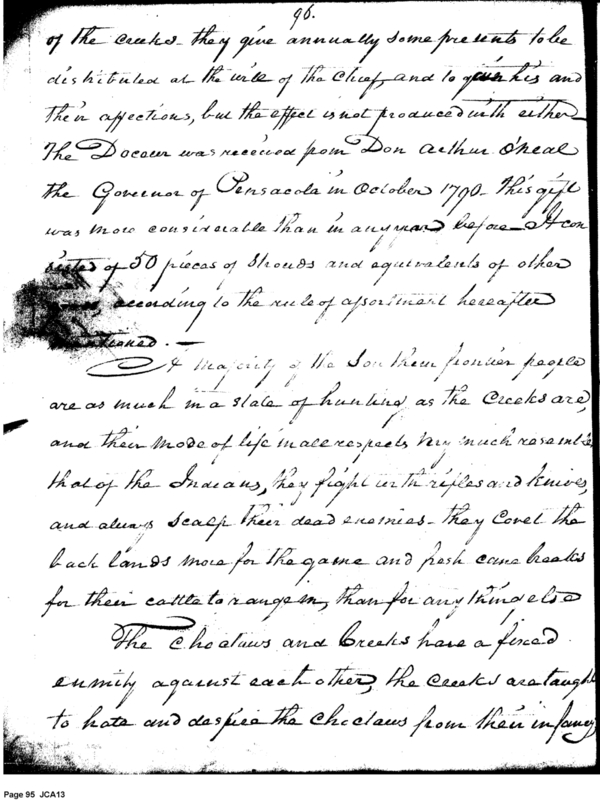 96.
of the creeks - they give annually some presents to be
distributed at the will of the Chief, and to gain his and
their affections, but the effect is not produced with either -
The Doceur was received from Don Arthur O'neal
the Governor of Pensacola in October 1790 - This gift
was more considerable than in any before - It con
sisted of 50 pieces of Shouds and equivalents of other
according to the rule of assortment hereafter
mentioned. -
A majority of the Southern frontier people
are as much in a state of hunting as the Creeks are,
and their mode of life in all respects very much resemble
that of the Indians, they fight with rifles and knives,
and always scalp their dead enemies - they covet the
back lands more for the game and fresh cane breaks
for their cattle to range in, than for any thing else
The Choctaws and Creeks have a fixed
enmity against each other, the creeks are taught
to hate and despise the Choctaws from their infancy,
Page 95 JCA13